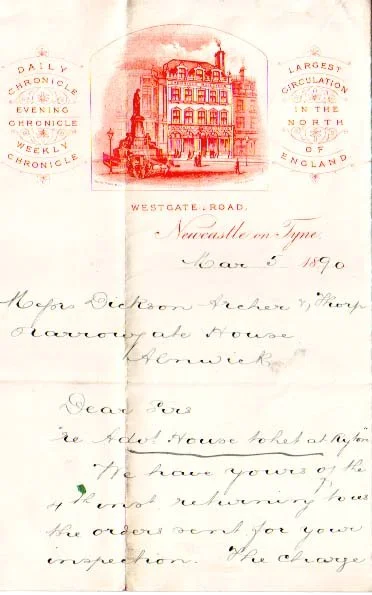 DAILY
CHRONICLE
EVENING
CHRONICLE
WEEKLY
CHRONICLE
LARGEST
CIRCULATION
IN THE
NORTH
OF
ENGLAND
WESTGATE ROAD.
Newcastle on Tyne,
Mar 5 1890
Messrs Dickson Archer & Thorp
Narrowgate House
Alnwick
Dear Sirs
"re Advt House to let at Ryton"
We have yours of the
4th inst. returning to us
the orders sent for your
inspection. The charge